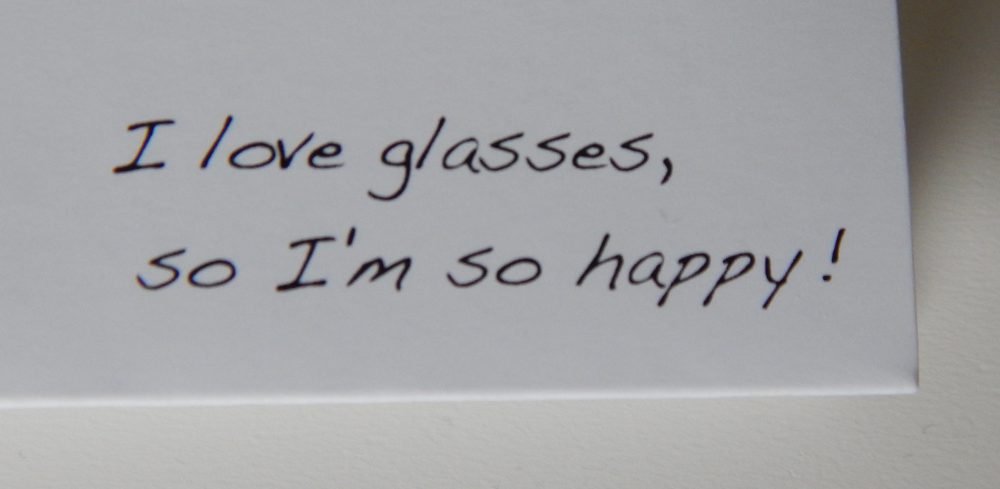 I love glasses,
so I'm so happy!